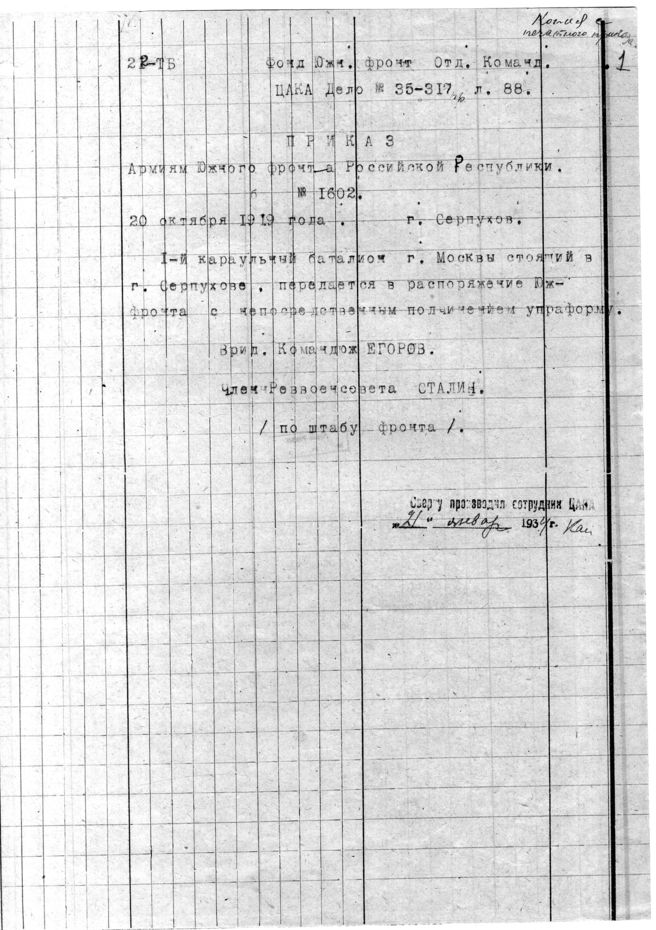 Копия с
печатного приказа
1
2Р-ТБ Фонд Южн. фронт Отд. Команд.
ЦАКА Дело № 35-317 л. 88.
ПРИКАЗ
Армиям Южного фронта Российской Республики.
№ 1602.
20 октября 1919 года. г. Серпухов.
I-й караульный баталион г. Москвы стоящий в
г. Серпухове, передается в распоряжение Юж-
фронта с непосредственным подчинением упраформу.
Врид. Командюж ЕГОРОВ.
Член Реввоенсовета СТАЛИН.
/ по штабу фронта /.
Сверку производил сотрудник ЦАКА
"21" январ 1934 г.